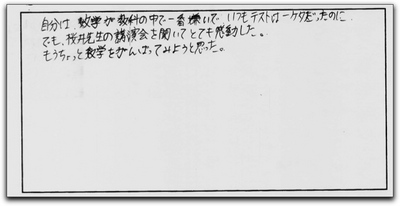 自分は、数学が教科の中で一番嫌いで、いつもテストは一ケタだったのに
でも、桜井先生の講演会を聞いてとても感動した。
もうちょっと数学をがんばってみようと思った。